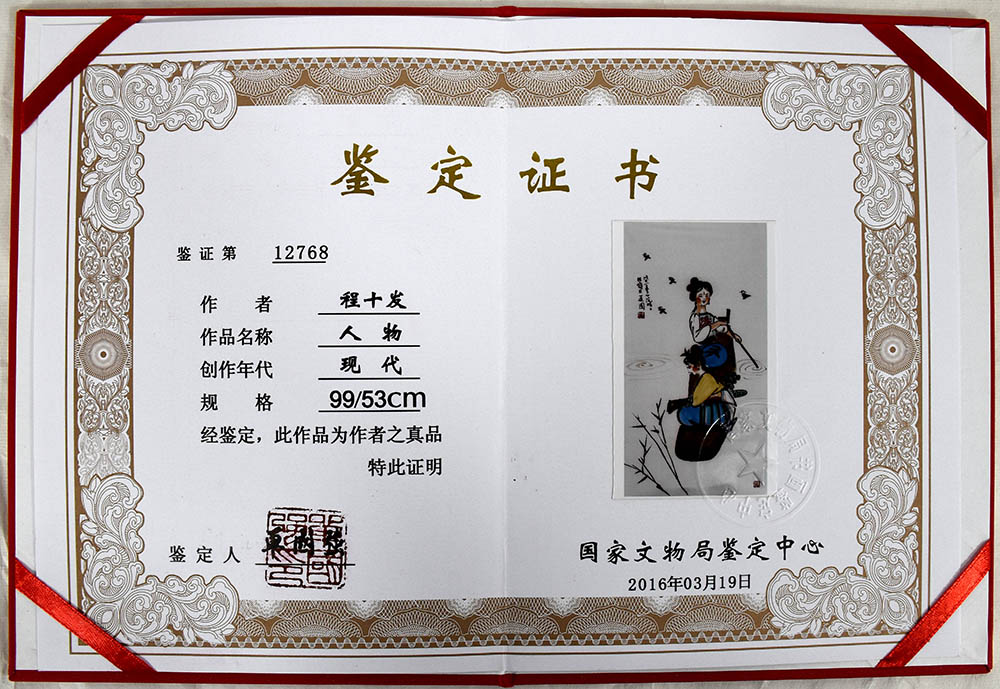 鉴定证书
鉴证第 12768
作者 程十发
作品名称 人物
创作年代 现代
规格 99/53cm
经鉴定，此作品为作者之真品
特此证明
鉴定人
国家文物局鉴定中心
2016年03月19日